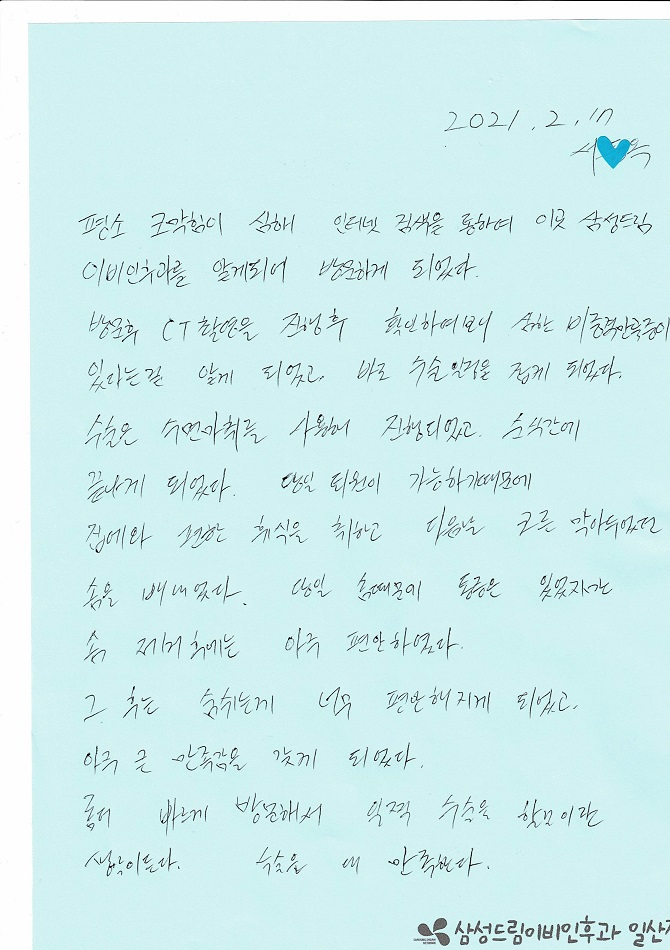 2021. 2. 17
서 옥
평소 코막힘이 심해 인터넷 검색을 통하여 이곳 삼성드림
이비인후과를 알게되어 방문하게 되었다.
방문후 CT촬영을 진행후 확인하여보니 심한 비중격만곡증이
있다는걸 알게 되었고, 바로 수술일정을 잡게 되었다.
수술은 수면마취를 사용해 진행되었고, 순식간에
끝나게 되었다. 당일 퇴원이 가능하기때문에
집에와 편한 휴식을 취하고 다음날 코를 막아두었던
솜을 빼내었다. 당일 솜때문에 통증은 있었지만
솜 제거 후에는 아주 편안하였다.
그 후는 숨쉬는게 너무 편안해지게 되었고,
아주 큰 만족감을 갖게 되었다.
좀더 빠르게 방문해서 일찍 수술을 할것이란
생각이든다. 수술을 매 만족한다.
삼성드림이비인후과 일산